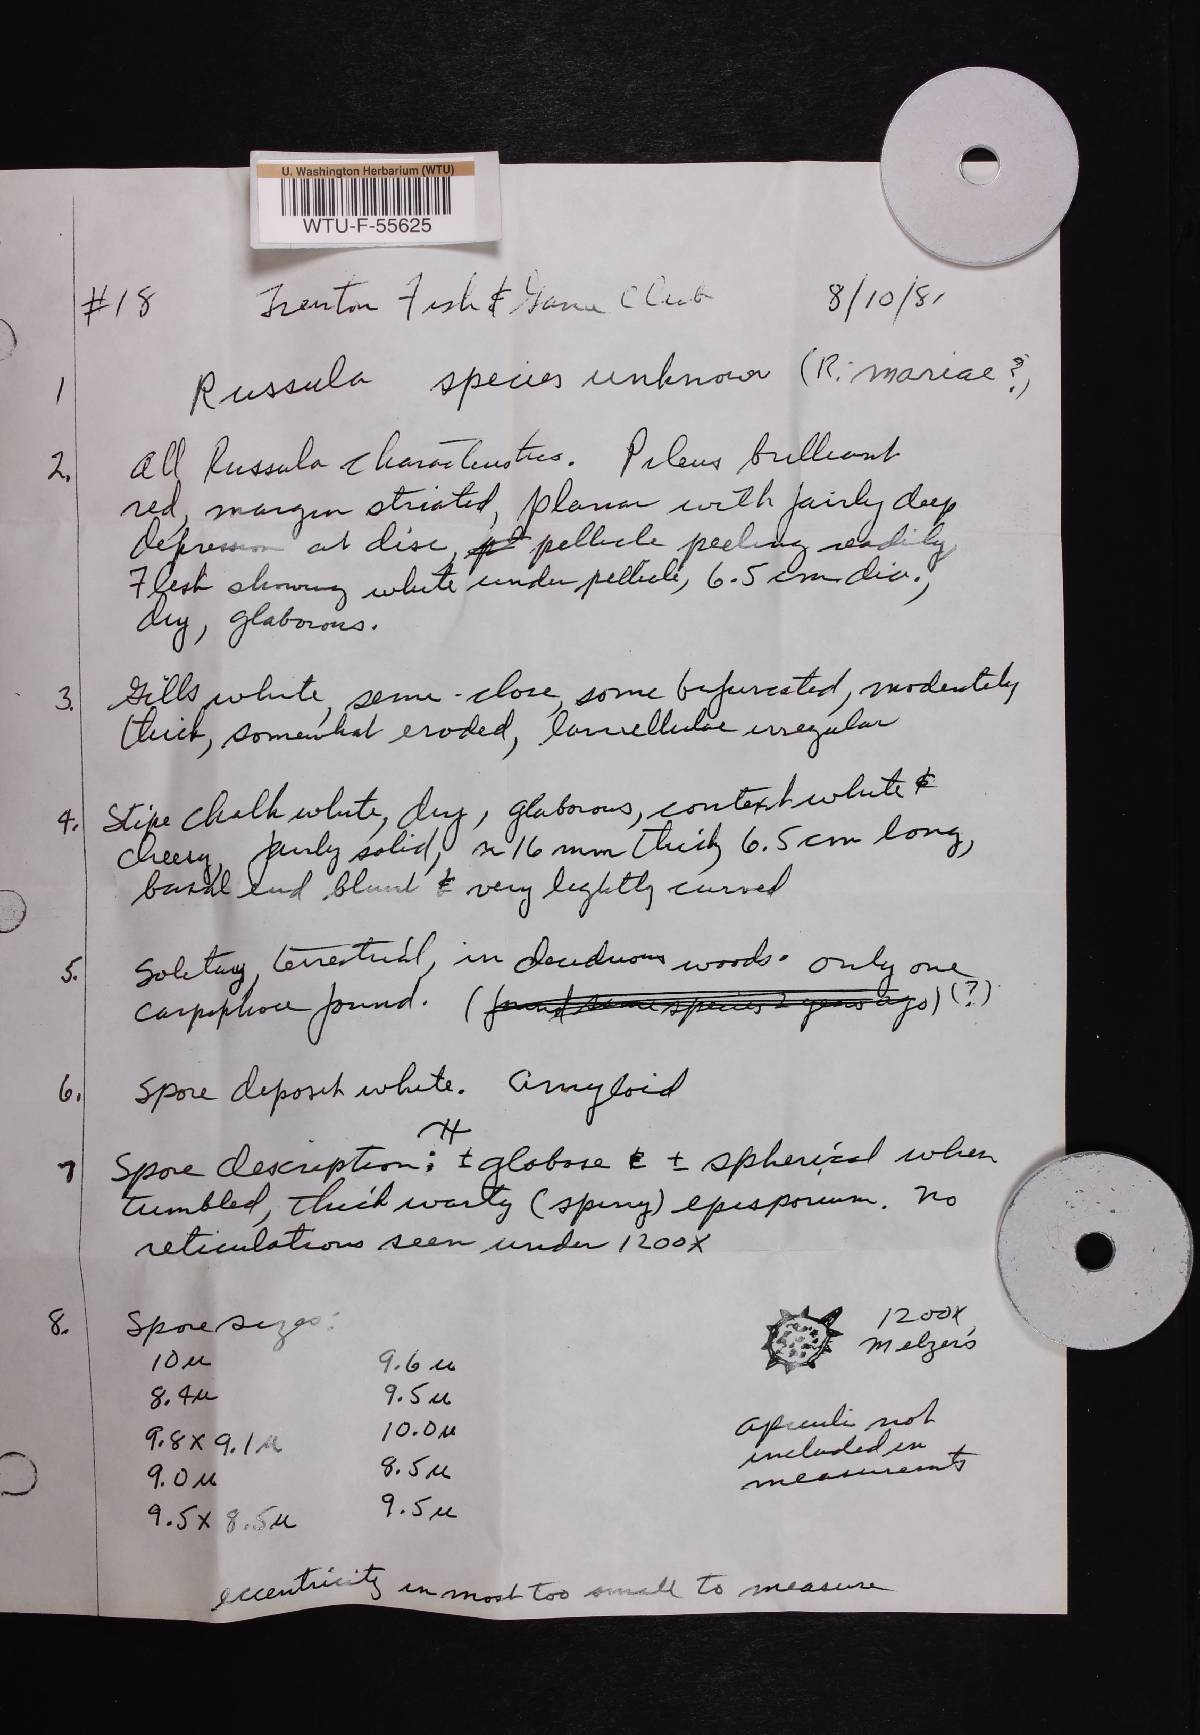 U. Washington Herbarium (WTU)
WTU-F-55625
#18 Trenton Fish & Game Club 8/10/81
1 Russula species unknown (R. mariae ?)
2. All Russula characteristics. Pileus brilliant
red, margin striated, planar with fairly deep
depression at disc, pellicle peeling readily,
Flesh showing white under pellicle, 6.5 cm dia.,
dry, glaborous.
3. Gills white, semi-close, some bifurcated, moderately
thick, somewhat eroded, lamellulae irregular
4. Stipe chalk white, dry, glaborous, context white &
cheesy, fairly solid, ~ 16 mm thick, 6.5 cm long,
basal end blunt & very lightly curved
5. Solitary, terrestrial, in deciduous woods. only one
carpophore found. (found same species 2 years ago) (?)
6. Spore deposit white. Amyloid
7 Spore description: ± globose & ± spherical when
tumbled, thick warty (spiny) episporium. No
reticulations seen under 1200X
8. Spore sizes:
10 µ 9.6 µ
8.4 µ 9.5 µ
9.8 x 9.1 µ 10.0 µ
9.0 µ 8.5 µ
9.5 x 8.5 µ 9.5 µ
1200X
Melzer's
apiculi not
included in
measurements
eccentricity in most too small to measure